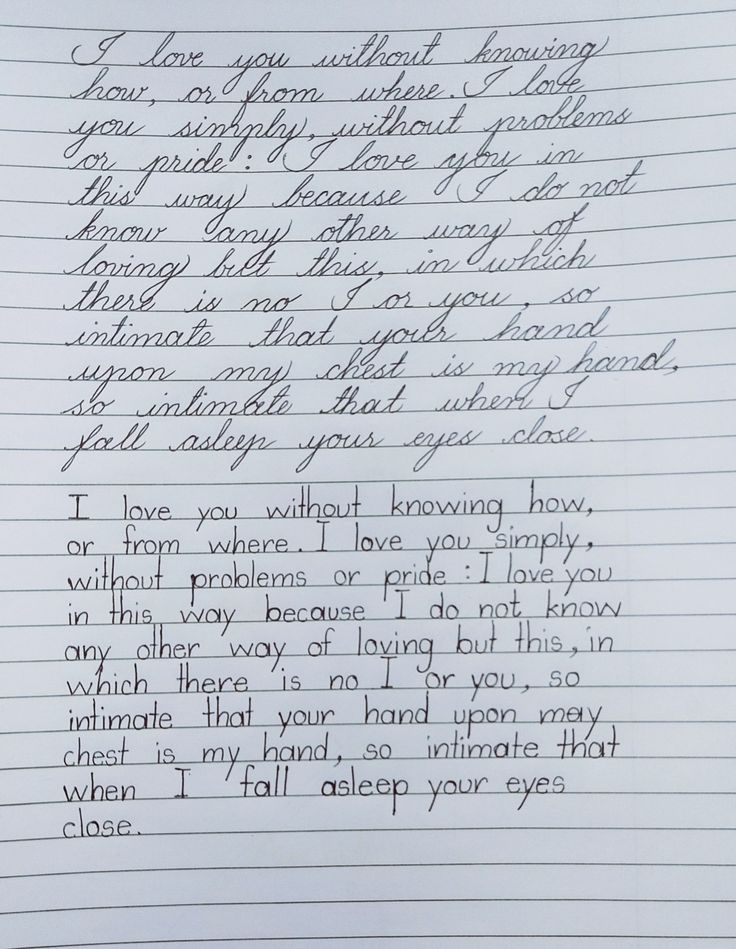 I love you without knowing
how, or from where. I love
you simply, without problems
or pride: I love you in
this way because I do not
know any other way of
loving but this, in which
there is no I or you, so
intimate that your hand
upon my chest is my hand,
so intimate that when I
fall asleep your eyes close.
I love you without knowing how,
or from where. I love you simply,
without problems or pride: I love you
in this way because I do not know
any other way of loving but this, in
which there is no I or you, so
intimate that your hand upon may
chest is my hand, so intimate that
when I fall asleep your eyes
close.